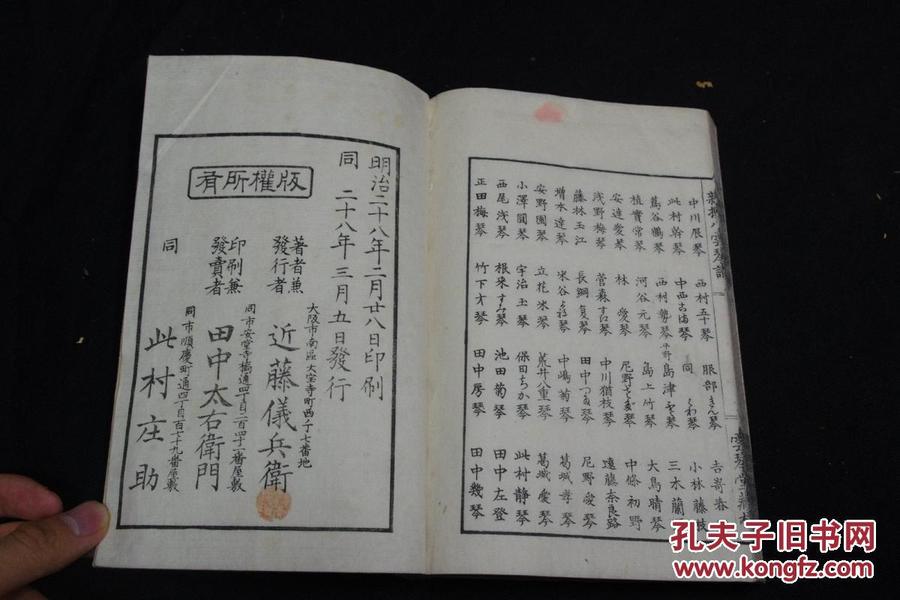 中川辰琴　西村五十琴　服部きん琴
此村幹琴　中西古傳琴　同
葛谷鶴琴　西村勢琴　島津
植貴常琴　河谷元琴　島上竹琴　大鳥晴琴
安達愛琴　林愛琴　中條初野
浅野梅琴　菅森すゑ琴　中川猶枝琴　遠藤奈良路
藤林玉江　長綱复琴　田中つる琴　尼野愛琴
增本達琴　中嶋菊琴　葛城孝琴
安野園琴　立花米琴　荒井八重琴　葛城愛琴
小澤閏琴　宇治玉琴　保田ちか琴　此村静琴
西尾浅琴　根来すみ琴　池田菊琴　田中左登
正田梅琴　竹下才琴　田中房琴　田中幾琴
明治二十八年二月廿八日印刷
同　二十八年三月五日發行
版權所有
大阪市南區大宝寺町西ノ丁七番地
著者兼發行者　近藤儀兵衛
同市安堂寺橋通四丁目二百四十一番屋敷
印刷兼發賣者　田中太右衛門
同市順慶町通四丁目百七十九番屋敷
同　此村庄助
孔夫子旧书网
www.kongfz.com